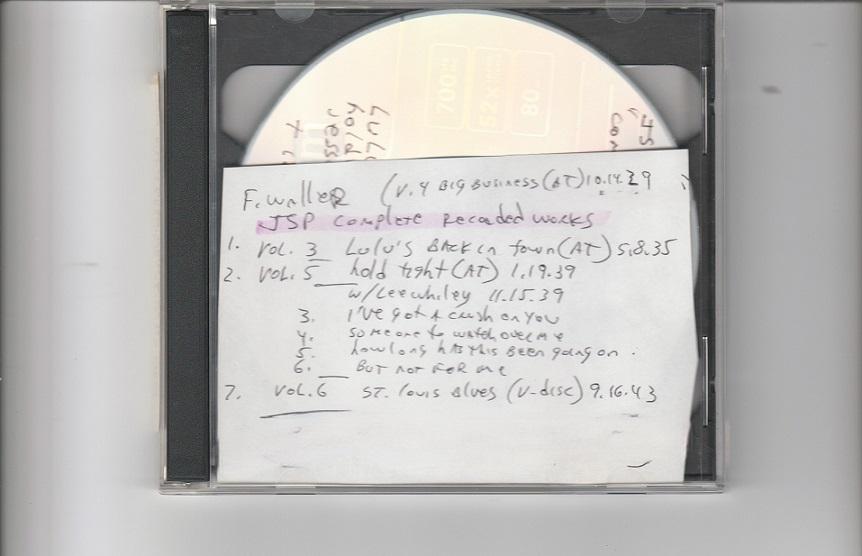 700
52x
80
F. Waller (V. 4 BIG BUSINESS (AT) 10.14.29
JSP complete Recorded works
1. VOL. 3 LuLu's BACK In town (AT) 5.8.35
2. VOL. 5 hold tight (AT) 1.19.39
w/Lee whiley 11.15.39
3. I've got A crush on you
4. someone to watch over me
5. how long hAs this Been going on .
6. But not For me
7. VOL. 6 ST. Louis Blues (V-disc) 9.16.43